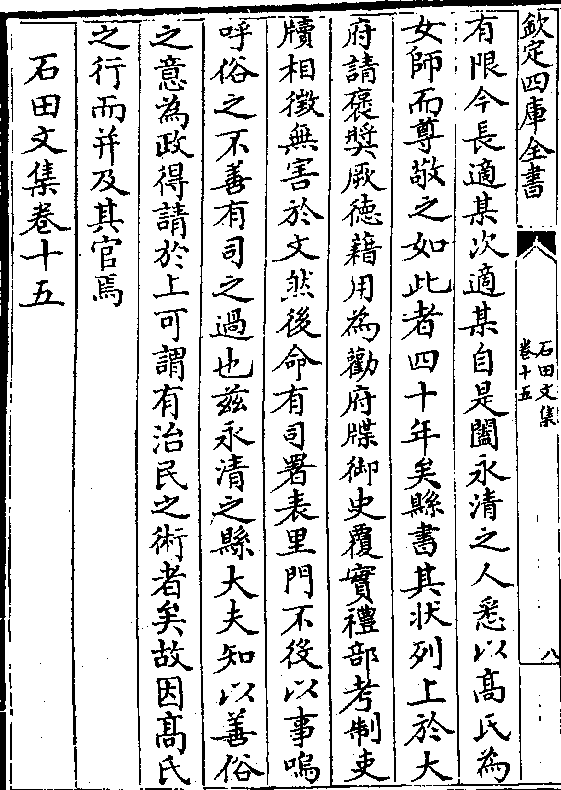 欽定四庫全書
石田文集
卷十五
八
有限今長適某次適某自是闔永清之人悉以髙氏為
女師而尊敬之如此者四十年矣縣書其状列上於大
府請褒奬厥德藉用為勸府牒御史覆實禮部考制吏
牘相徵無害於文然後命有司署表里門不役以事嗚
呼俗之不善有司之過也兹永清之縣大夫知以善俗
之意為政得請於上可謂有治民之術者矣故因髙氏
之行而并及其官焉
石田文集卷十五